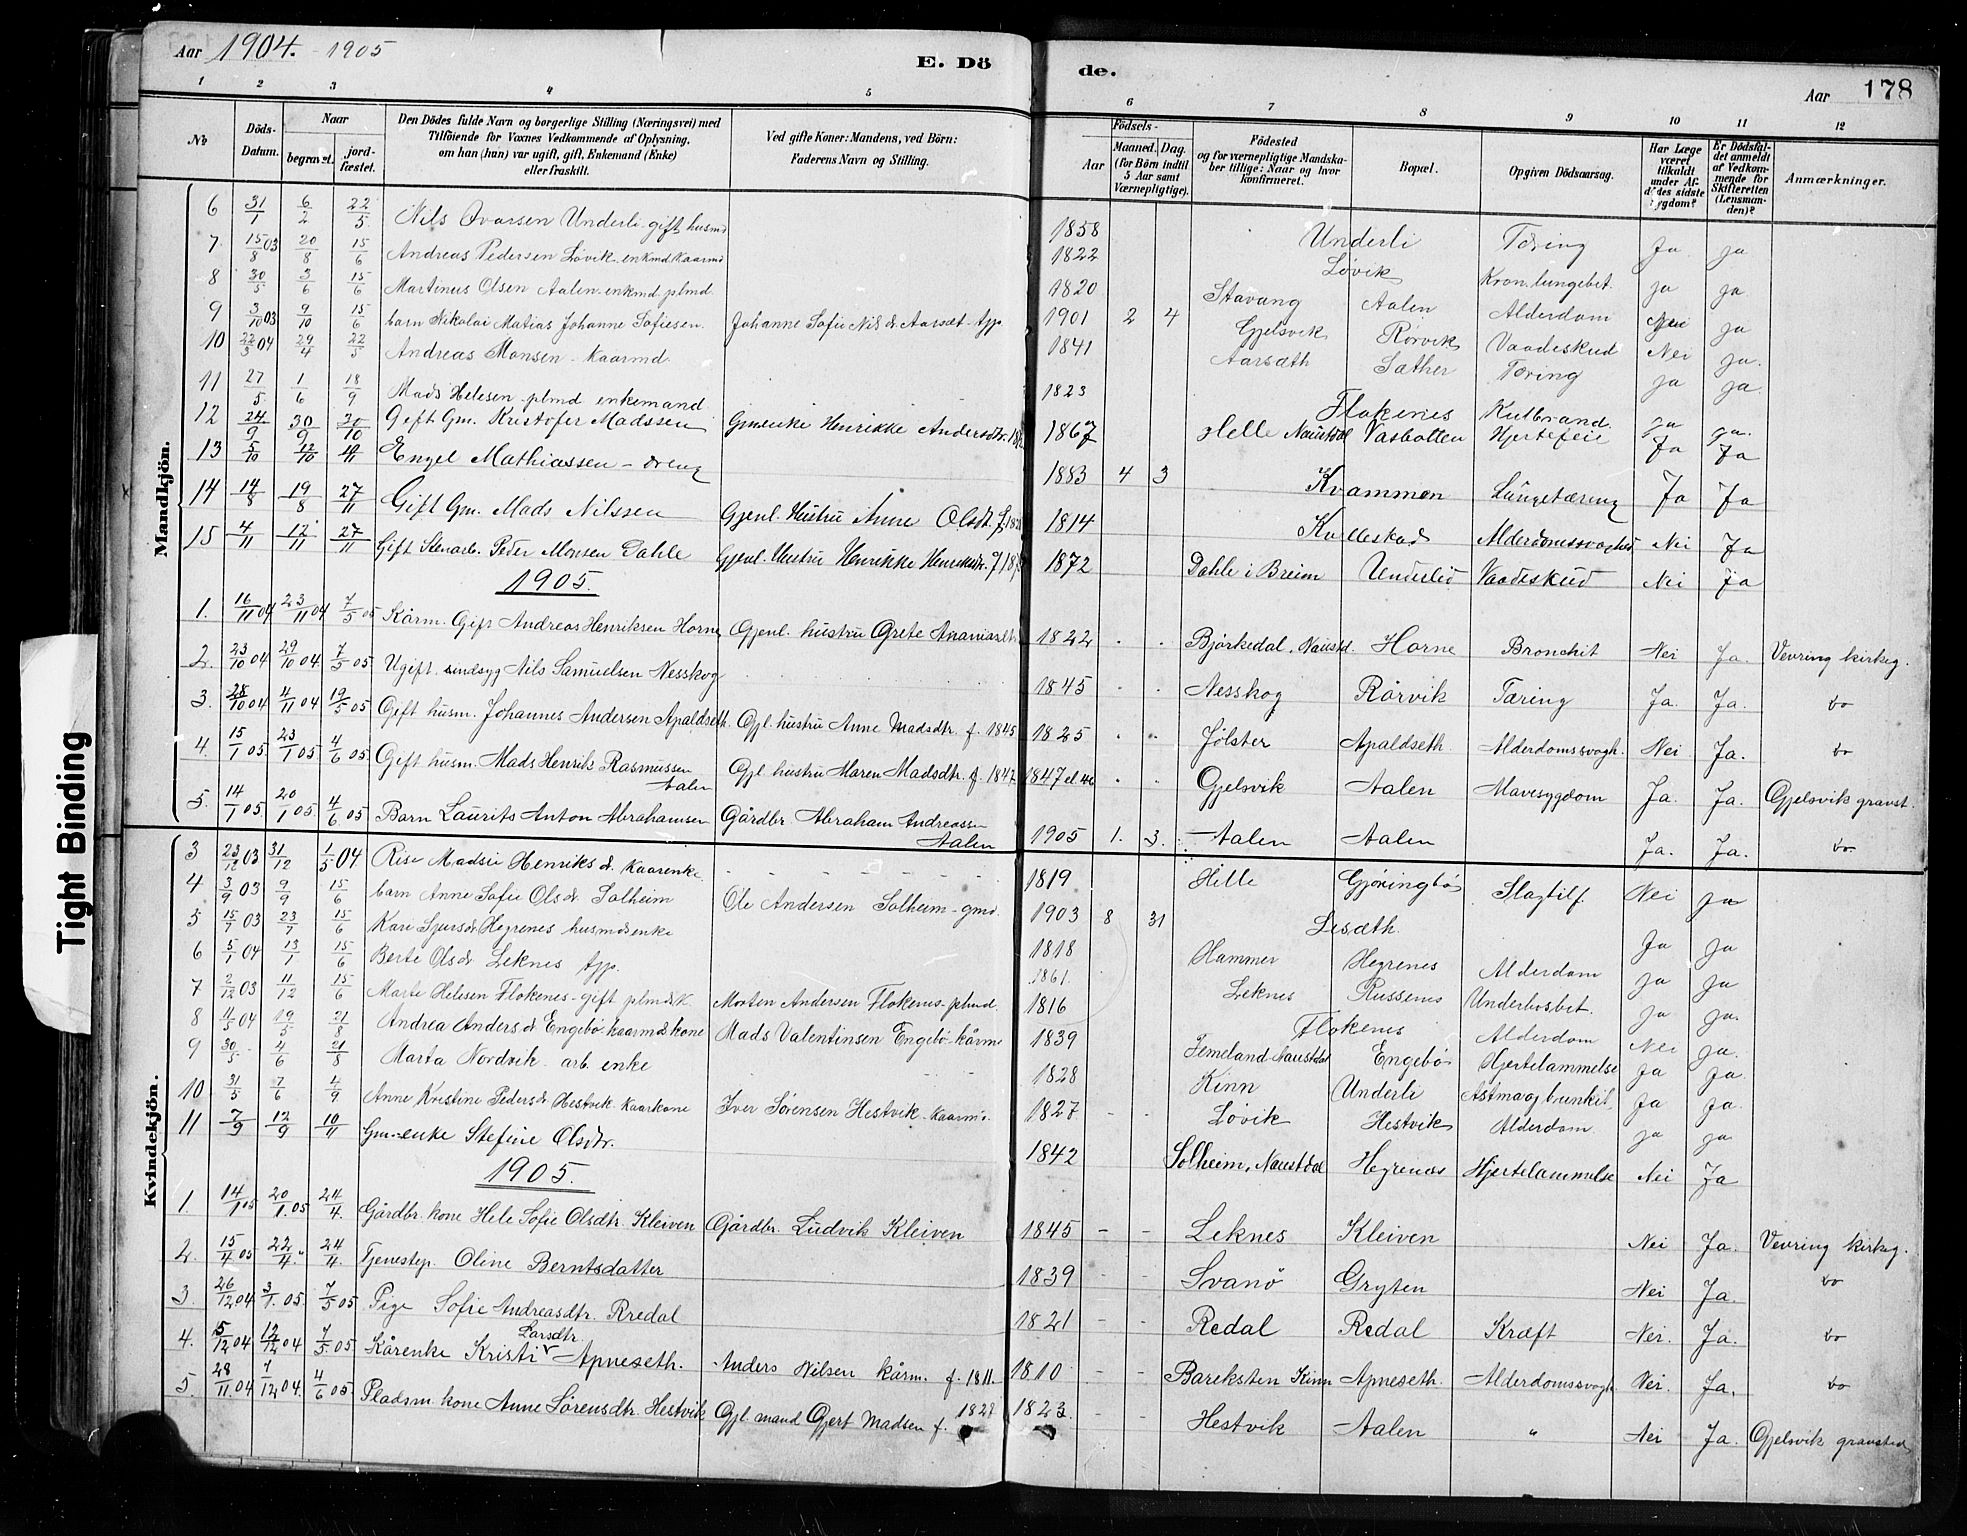 Aar 1904. - 1905
E. Dö de.
Aar 178
1 2 3 4 5 6 7 8 9 10 11 12
No Döds-Datum. Naar begravet. jordfæstet. Den Dödes fulde Navn og borgerlige Stilling (Næringsvei) med Tilföiende for Voxnes Vedkommende af Oplysning, om han (hun) var ugift, gift, Enkemand (Enke) eller fraskilt. Ved gifte Koner: Mandens, ved Börn: Faderens Navn og Stilling. Födsels- Aar Maaned. Dag. (for Börn indtil 5 Aar samt Værnepligtige). Födested og for værnepligtige Mandskaber tillige: Naar og hvor konfirmeret. Bopæl. Opgiven Dödsaarsag. Har Læge været tilkaldt under Afdödes sidste Sygdom? Er Dödsfaldet anmeldt af Vedkommende for Skifteretten (Lensmanden)? Anmærkninger.
Mandkjön.
6 31/1 6/2 22/5 Nils Ovarsen Underli gift husmd 1858 Underli Tæring Ja ja
7 15/8 03 20/8 15/6 Andreas Pedersen Løvik enkmd kaarmd 1822 Løvik Kron. lungebet. ja ja
8 30/5 3/6 15/6 Martinus Olsen Aalen enkmd plmd 1820 Stavang Aalen Alderdom Nei ja
9 3/10 03 9/10 15/6 barn Nikolai Matias Johanne Sofiesen Johanne Sofie Nilsdr Aarsæt - tjp 1901 2 4 Gjelsvik Rørvik Vaadeskud Nei ja
10 22/3 04 29/4 22/5 Andreas Monsen - kaarmd 1841 Aarsæth Sæther Tæring ja ja
11 27/5 1/6 18/9 Mads Helesen plmd enkemand 1823 Flokenes Kulbrand ja ja
12 24/9 30/9 30/10 Gift Gm. Kristofer Madssen Gmenke Henrikke Andersdtr. 1867 Helle Naustdal Vasbotten Hjertefeil Ja Ja
13 5/10 12/10 19/11 Engel Mathiassen - dreng 1883 4 3 Kvammen Lungetæring Ja Ja
14 14/8 19/8 27/11 Gift Gm. Mads Nilssen Gjenl. Hustru Anne Olsdt. f. 1814 Kalleskad Alderdomssvaghed Nei Ja
15 4/11 12/11 27/11 Gift Stenarb. Peder Monsen Dahle Gjenl. Hustru Henrikke Henriksdr. f 1872 Dahle i Breim Underlid Vaadeskud Nei ja
1905.
1. 16/11 04 23/11 04 7/5 05 Kårm. Gift Andreas Henriksen Horne Gjenl. hustru Grete Ananiasdtr 1822 Bjørkedal, Naustd. Horne Bronchit Nei Ja. Vevring kirkeg.
2. 23/10 04 29/10 04. 7/5 05. Ugift sindsyg Nils Samuelsen Nesskog 1845 Nesskog Rørvik Tæring Ja. Ja. do
3. 28/10 04 4/11 04 19/5 05 Gift husm. Johannes Andersen Apaldseth. Gjl. hustru Anne Madsdtr. f. 1845 1825 Jølster Apaldseth. Alderdomssvagh. Nei Ja. do
4. 15/1 05 23/1 05 4/6 05. Gift husm. Mads Henrik Rasmussen Aalen Gjl hustru Maren Madsdtr. f. 1847. 1847 el 46 Gjelsvik Aalen Mavesygdom Ja. Ja. Gjelsvik gravst.
5. 14/1 05 20/1 05. 4/6 05. Barn Laurits Anton Abrahamsen Gårdbr. Abraham Andreassen Aalen 1905 1. 3. Aalen Aalen Ja. Ja. do
Kvindekjön.
3 23/12 03 31/12 1/5 04 Rise Madsie Henriksd. kaarenke 1819 Helle Gjøringbø Slagtilf. Nei ja
4 3/9 03 9/9 15/6 barn Anne Sofie Olsdr Solheim Ole Andersen Solheim - gmd. 1903 8 31 Lisæth.
5 15/7 03 23/7 15/6 Kari Sjursdr Hegrenes husmdsenke 1818 Hammer Hegrenes Alderdom Ja ja
6 5/1 04 13/1 15/6 Berte Olsdr. Leknes tjp. 1861. Leknes Russenes Underlivsbet. ja ja
7 2/12 03 11/12 15/6 Marte Helesen Flokenes - gift plmdsk. Morten Andersen Flokenes - plmd 1816 Flokenes Alderdom ja ja.
8 11/5 04 19/5 21/8 Andrea Andersdr Engebø kaarmdskone Mads Valentinsen Engebø kårm 1839 Femeland Naustdal Engebø Hjertelammelse Nei ja.
9 30/5 4/6 21/8 Marta Nordvik arb. enke 1828 Kinn Underli Astma og brunkit. ja ja.
10 31/5 7/6 4/9 Anne Kristine Pedersdr Hestvik kaarkone Iver Sørensen Hestvik kaarmd. 1827 Løvik Hestvik Alderdom. ja ja.
11 7/9 12/9 10/11 Gm-enke Stefine Olsdtr. 1842 Solheim, Naustdal Hegrenæs Hjertelammelse Nei Ja
1905.
1. 14/1 05 20/1. 05 24/4. Gårdbr. kone Hele Sofie Olsdtr. Kleiven Gårdbr. Ludvik Kleiven 1845 - - Leknes Kleiven Nei Ja. Vevring kirkeg.
2. 15/4 05 22/4. " 24/4. Tjenestep. Oline Berntsdatter 1839 - - Svanø Gryten Nei Ja. do
3. 26/12 04 3/1. 05. 7/5 05 Pige Sofie Andreasdtr. Rredal 1821 Redal Redal Kræft Nei. Ja. do
4. 5/12 04 12/12 04 7/5 05 Kårenke Kristi Larsdtr. Apneseth. Anders Nilsen kårm. f. 1811. 1810 - - Bareksten Kinn Apneseth. Alderdomssvagh Nei. Ja. do
5. 28/11 04 7/12 04. 4/6 05. Pladsm. kone Anne Sørensdtr. Hestvik Gjl. mand Gjert Madsen f. 1827 1823. - - Hestvik Aalen " Nei Ja. Gjelsvik gravsted
Tight Binding